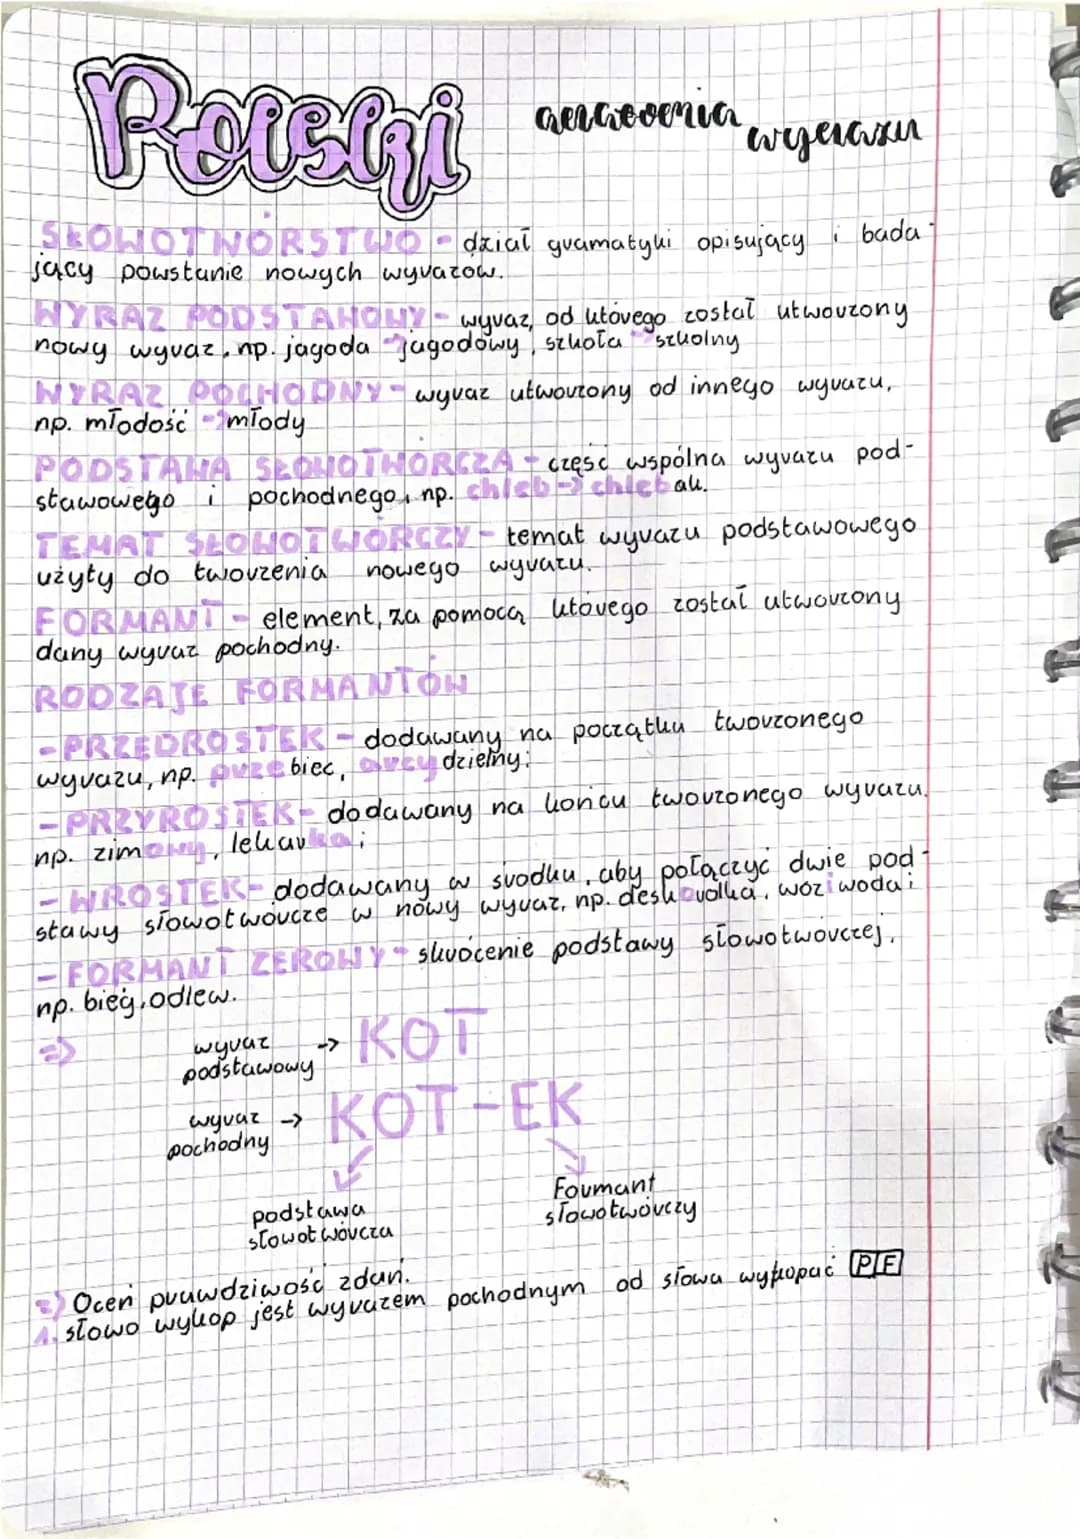 Polski
wyrazu
SŁOWOTWÓRSTWO - dział gramatyki opisujący i bada-
jący powstanie nowych wyrazów.
WYRAZ PODSTAWOWY - wyraz, od którego został utworzony
nowy wyraz, np. jagoda -> jagodowy, szkoła -> szkolny
WYRAZ POCHODNY - wyraz utworzony od innego wyrazu,
np. młodość -> młody
PODSTAWA SŁOWOTWÓRCZA - część wspólna wyrazu pod-
stawowego i pochodnego, np. chleb -> chlebak.
TEMAT SŁOWOTWÓRCZY - temat wyrazu podstawowego
użyty do tworzenia nowego wyrazu.
FORMANT - element, za pomocą którego został utworzony
dany wyraz pochodny.
RODZAJE FORMANTÓW
- PRZEDROSTEK - dodawany na początku tworzonego
wyrazu, np. przebiec, arcydzielny;
- PRZYROSTEK - dodawany na końcu tworzonego wyrazu.
np. zimowy, lekarka;
- WROSTEK - dodawany w środku, aby połączyć dwie pod-
stawy słowotwórcze w nowy wyraz, np. deskorolka, woziwoda;
- FORMANT ZEROWY - skrócenie podstawy słowotwórczej,
np. bieg, odlew.
=> wyraz podstawowy -> KOT
wyraz pochodny -> KOT-EK
podstawa słowotwórcza
Formant słowotwórczy
=) Oceń prawdziwość zdań.
1. słowo wykop jest wyrazem pochodnym od słowa wykopać P/F